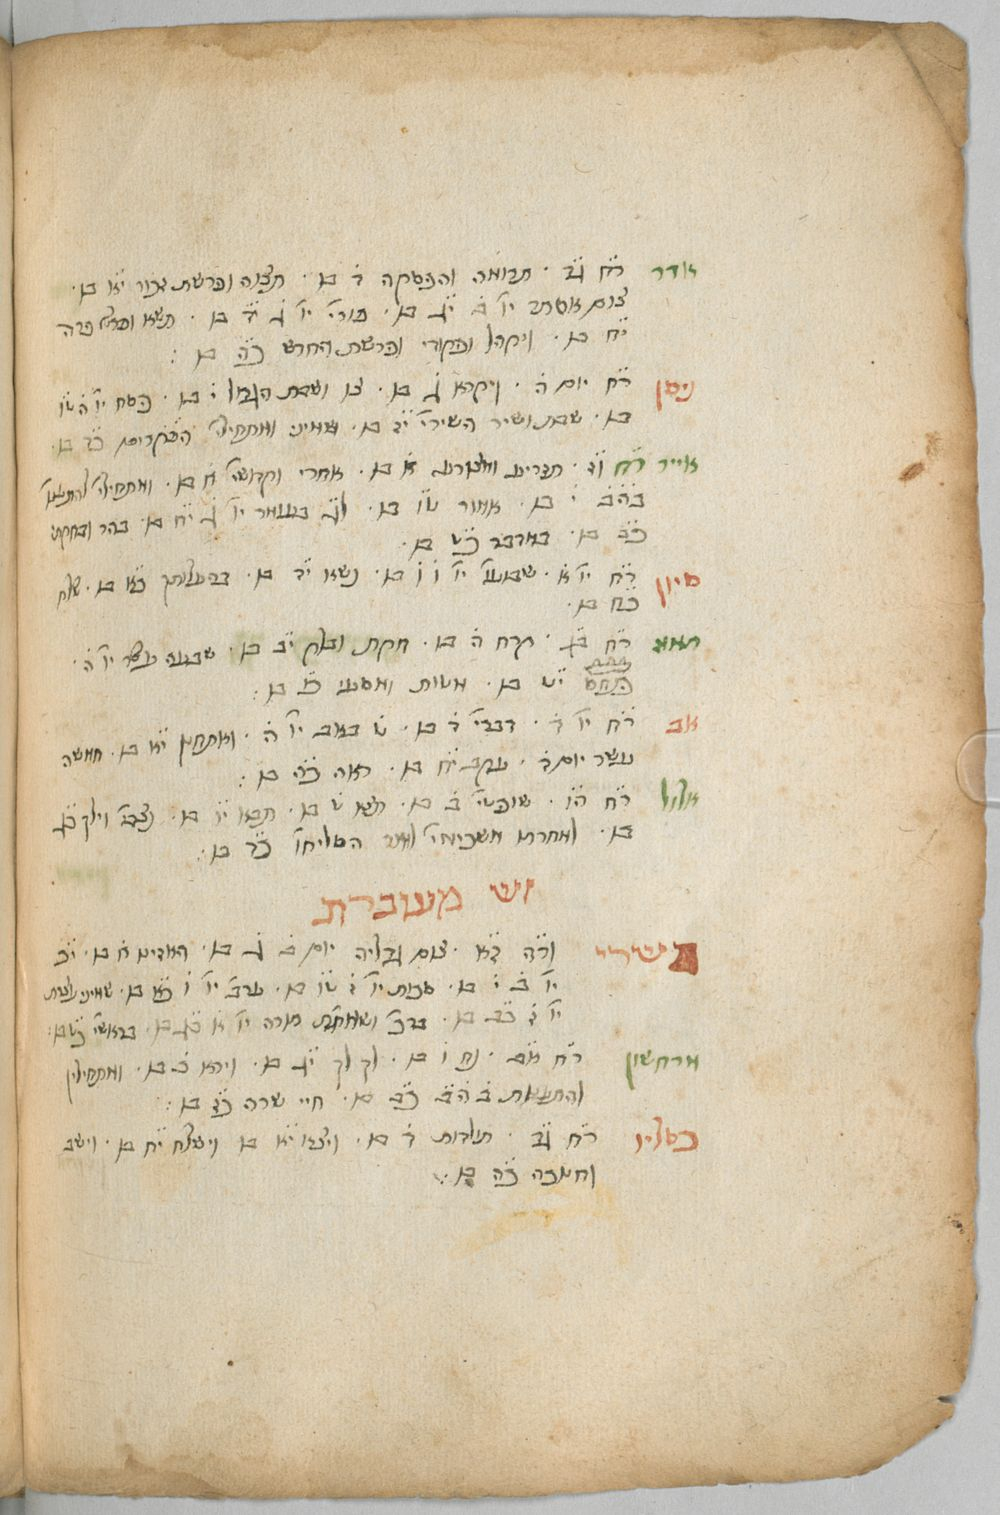 אדר ר״ח גד · תרומה והפסקה ד בו · תצוה ופרשת זכור יא בו ·
צום אסתר יו׳ ב׳ יג בו · פורי׳ יו׳ ג׳ יד בו · תשא ופרש׳ פרה
יח בו · ויקהל ופקודי ופרשת החדש כה בו :
ניסן ר״ח יום ה · ויקרא ג בו · צו ושבת הגדול י בו · פסח יו׳ ה טו
בו · שבת ושיר השירי׳ יז בו · שמיני ומתחילי׳ הפקרים כד בו ·
אייר ר״ח וז · תזריע ומצורע א בו · אחרי וקדושי׳ ח בו · ומתחילי׳ להתענו׳
בהב י בו · אמור טו בו · לג בעומר יו׳ ג יח בו · בהר ובחקתי
כב בו · במדבר כט בו ·
סיון ר״ח יו׳ א · שבועו׳ יו׳ ו ו בו · נשא יד בו · בהעלותך כא בו · שלח
כח בו ·
תמוז ר״ח בג · קרח ה בו · חקת ובלק יב בו · שבעה עשר יו׳ ה ·
פנחס יט בו · מטות ומסעי כו בו :
אב ר״ח יו׳ ד · דברי׳ ד בו · ט באב יו׳ ה · ואתחנן יא בו · חמשה
עשר יום ד · עקב יח בו · ראה כה בו :
אלול ר״ח הו · שופטי׳ ב בו · תצא ט בו · תבוא יו בו · נצבי׳ וילך כג
בו · למחרת משכימי׳ לומר הסליחו׳ כד בו :
זש מעוברת
תשרי ור״ה דא · צום גדליה יום ב ג בו · האזינו ח בו · י״כ
יו׳ ב י בו · סכות יו׳ ז טו בו · ערב׳ יו׳ ו כא בו · שמיני עצרת
יו׳ ז כב בו · ברכ׳ ושמחת תורה יו׳ א כג בו · בראשי׳ כט בו ·
מרחשון ר״ח אב · נח ו בו · לך לך יג בו · וירא כ בו · ומתחילין
להתענות בהב כב בו · חיי שרה כז בו :
כסליו ר״ח גד · תולדות ד בו · ויצא יא בו וישלח יח בו · וישב
וחנוכה כה בו :